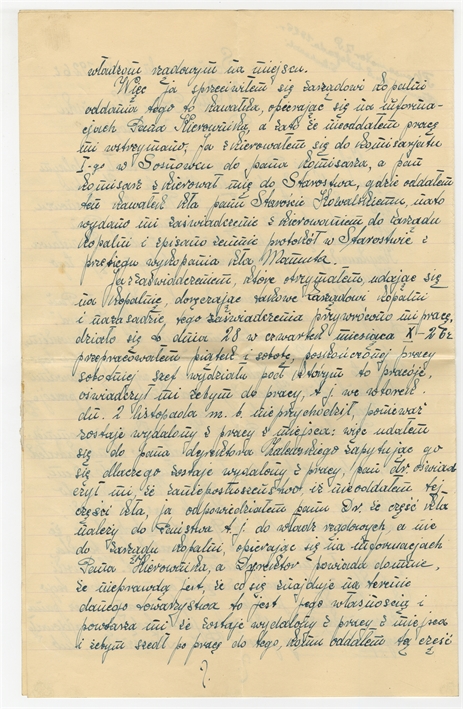 władzom rządowym na miejscu.
Więc ja sprzeciwiłem się zarządowi kopalni
oddania tego to kawałka, opierając się na informa-
cjach Pana Kierownika, a zato że nieoddałem pracę
mi wstrzymano, ja skierowałem się do komisarjatu
I-go w Sosnowcu do pana komisarza, a pan
komisarz skierował mię do Starostwa, gdzie oddałem
ten kawałek kła panu Staroście Kowalskiemu, nato
wydano mi zaświadczenie z kierowaniem do zarządu
kopalni i spisano zemnie protokół w Starostwie z
przebiegu wykopania kła Mamuta.
Ja z zaświadczeniem, które otrzymałem, udając się
na kopalnię, doręczając takowe zarządowi kopalni
i na zasadzie tego zaświadczenia przywrócono mi pracę,
działo się to dnia 28 w czwartek miesiąca X-
przepracowałem piątek i sobotę, po skończonej pracy
sobotniej szef wydziału pod którym to pracuję,
oświadczył mi żebym do pracy, t. j. we wtorek
dn. 2 listopada m. b. nieprzychodził, ponieważ
zostaję wydalony z pracy z miejsca: więc udałem
się do pana dyrektora zapytując go
się dlaczego zostaję wydalony z pracy, pan dr. oświad
czył mi, że za nieposłuszeństwo, iż nieoddałem tej
części kła, ja odpowiedziałem panu Dr. że część kła
należy do Państwa t. j. do władz rządowych, a nie
do zarządu kopalni, opierając się na informacjach
Pana Kierownika, a Dyrektor powiada do mnie,
że nieprawdą jest, że co się znajduje na terenie
danego towarzystwa to jest jego własnością i
powtarza mi że zostaję wydalony z pracy z miejsca
i żebym szedł po pracę do tego, komu oddałem tą część